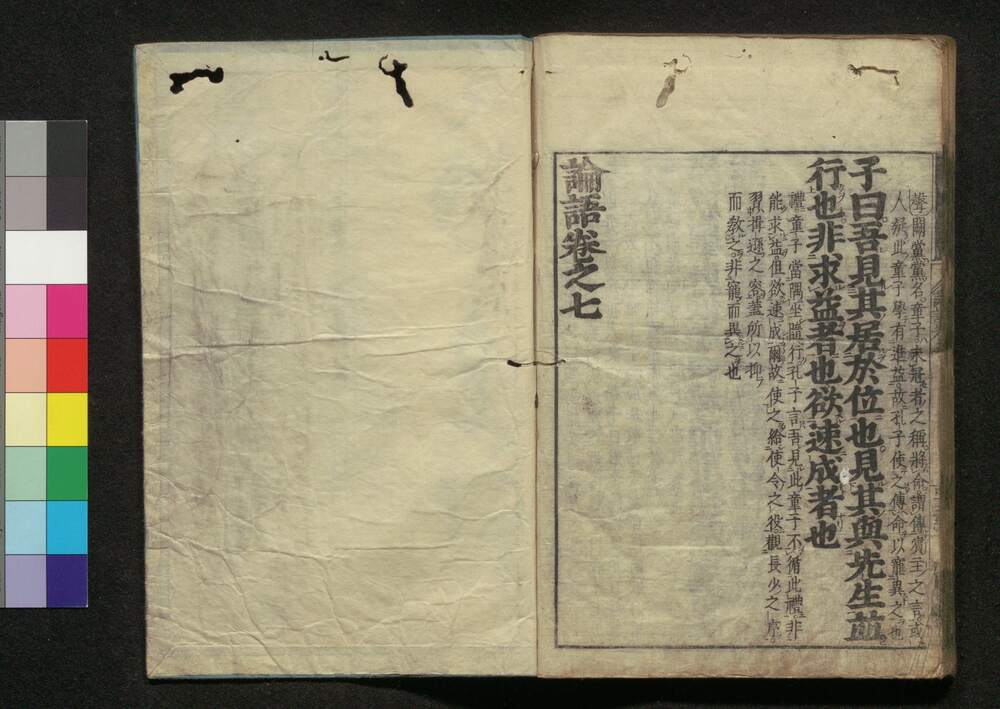 聲闕黨黨名童子未冠者之稱將命謂傳賓主之言或
人疑此童子學有進益故孔子使之傳命以寵異之也
子曰吾見其居於位也見其與先生並
行也非求益者也欲速成者也
禮童子當隅坐隨行孔子言吾見此童子不循此禮非
能求益但欲速成爾故使之給使令之役觀長少之序
習揖遜之容蓋所以抑
而教之非寵而異之也
論語卷之七